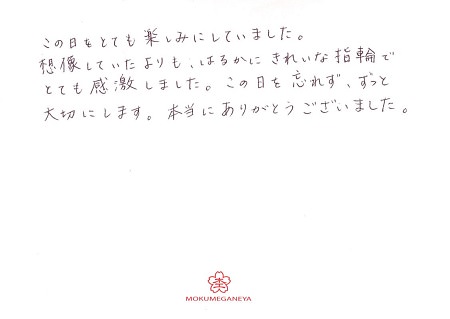 この日をとても楽しみにしていました。
想像していたよりも、はるかにきれいな指輪で
とても感激しました。この日を忘れず、ずっと
大切にします。本当にありがとうございました。
MOKUMEGANEYA